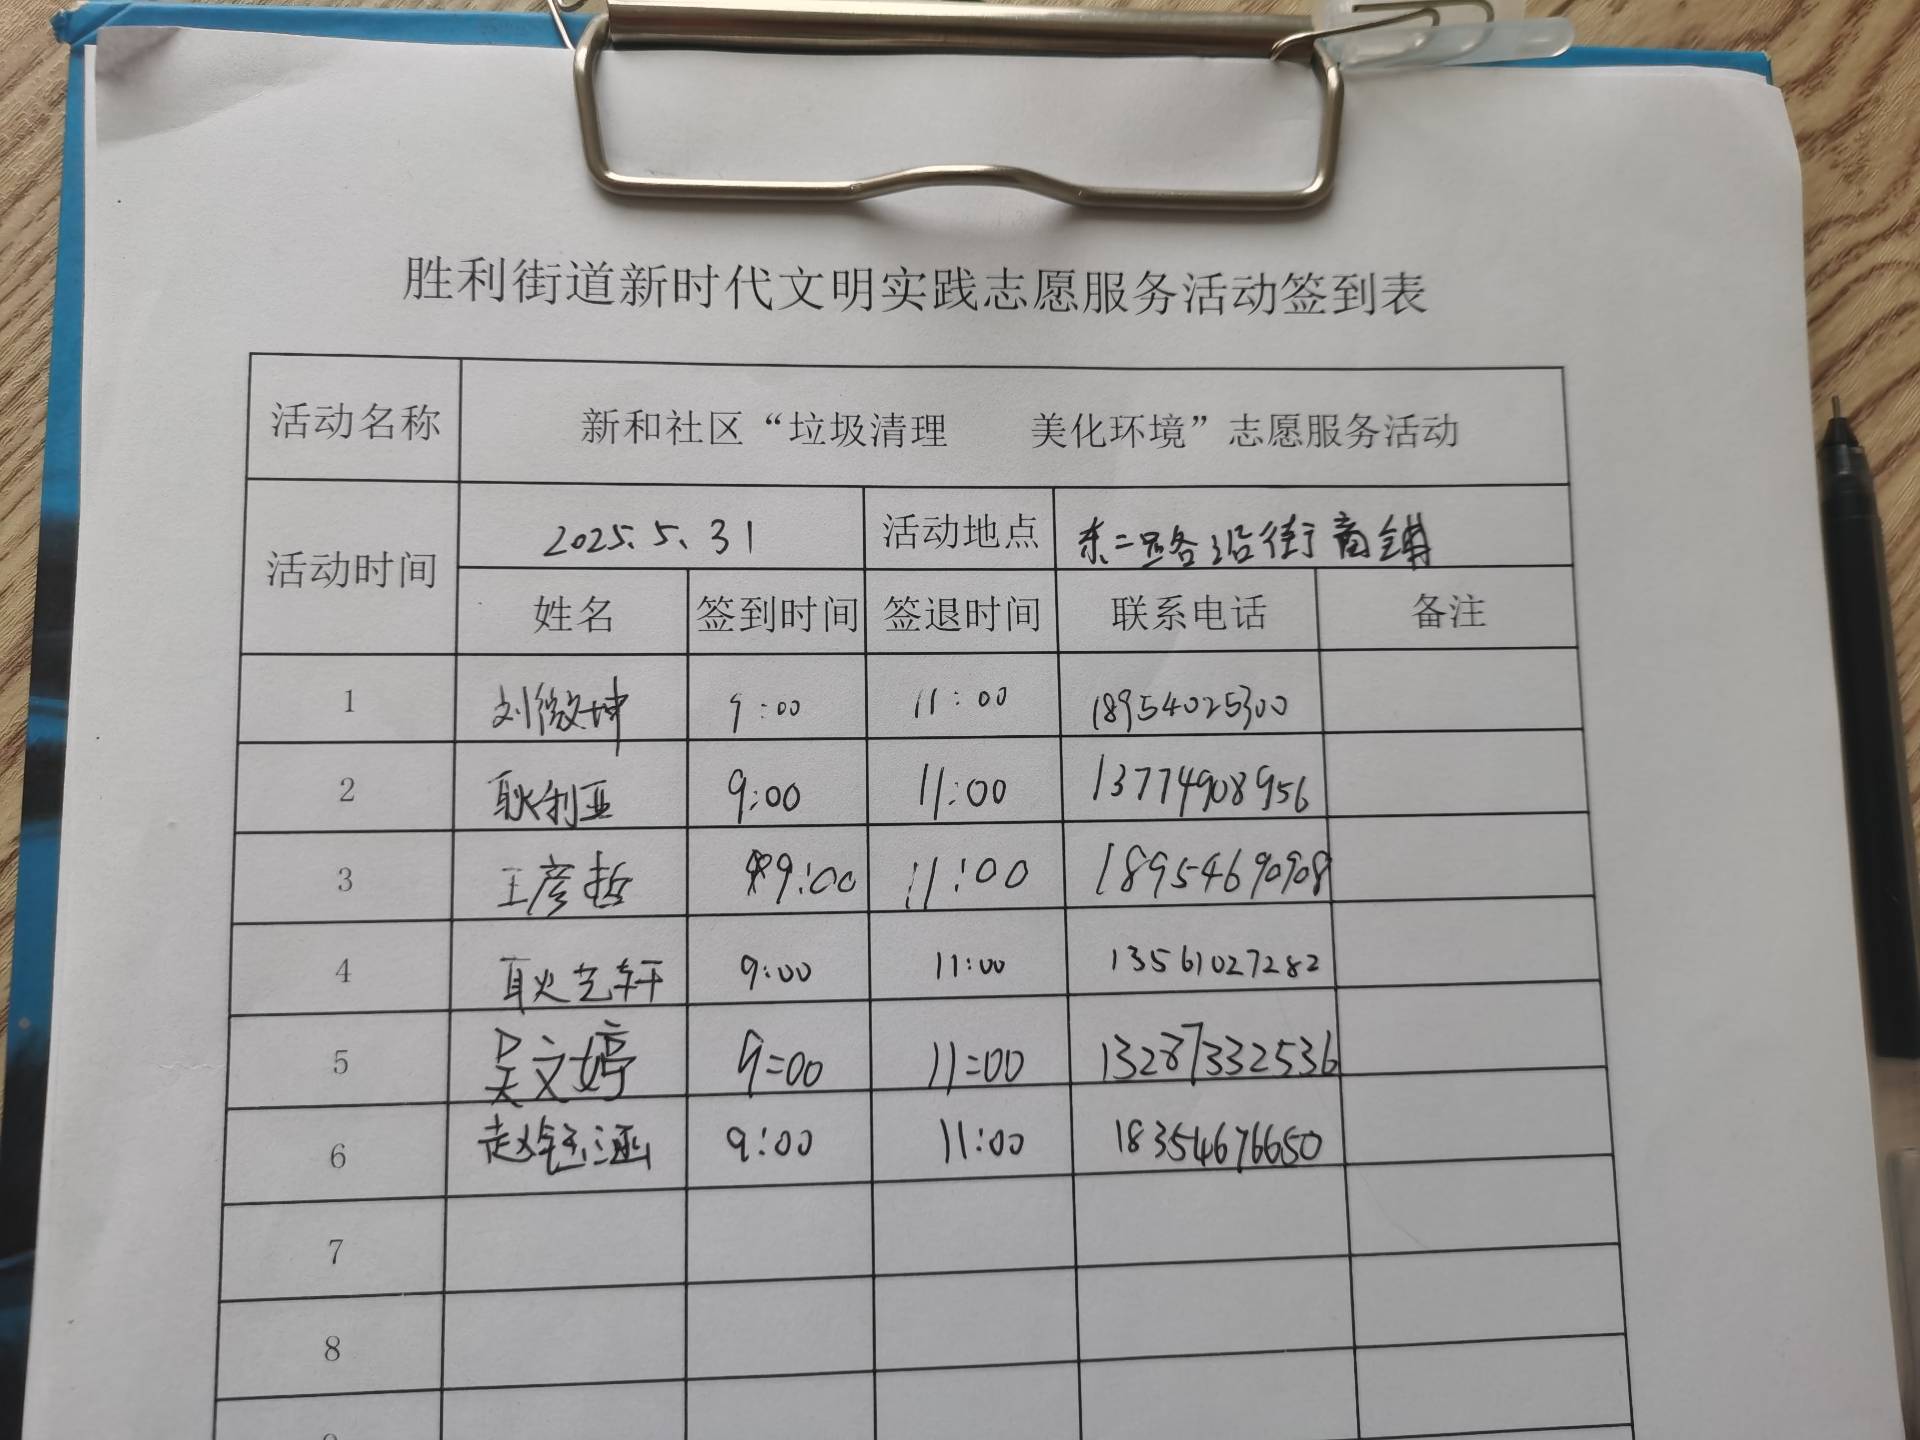 胜利街道新时代文明实践志愿服务活动签到表
活动名称 新和社区“垃圾清理 美化环境”志愿服务活动
活动时间 2025.5.31 活动地点 东二路沿街商铺
姓名 签到时间 签退时间 联系电话 备注
1 刘微坤 9:00 11:00 18954025300
2 耿利亚 9:00 11:00 13774908956
3 王彦哲 9:00 11:00 18954690908
4 耿艺轩 9:00 11:00 13561027282
5 吴文婷 9:00 11:00 13287332536
6 赵钰涵 9:00 11:00 18354676650
7
8